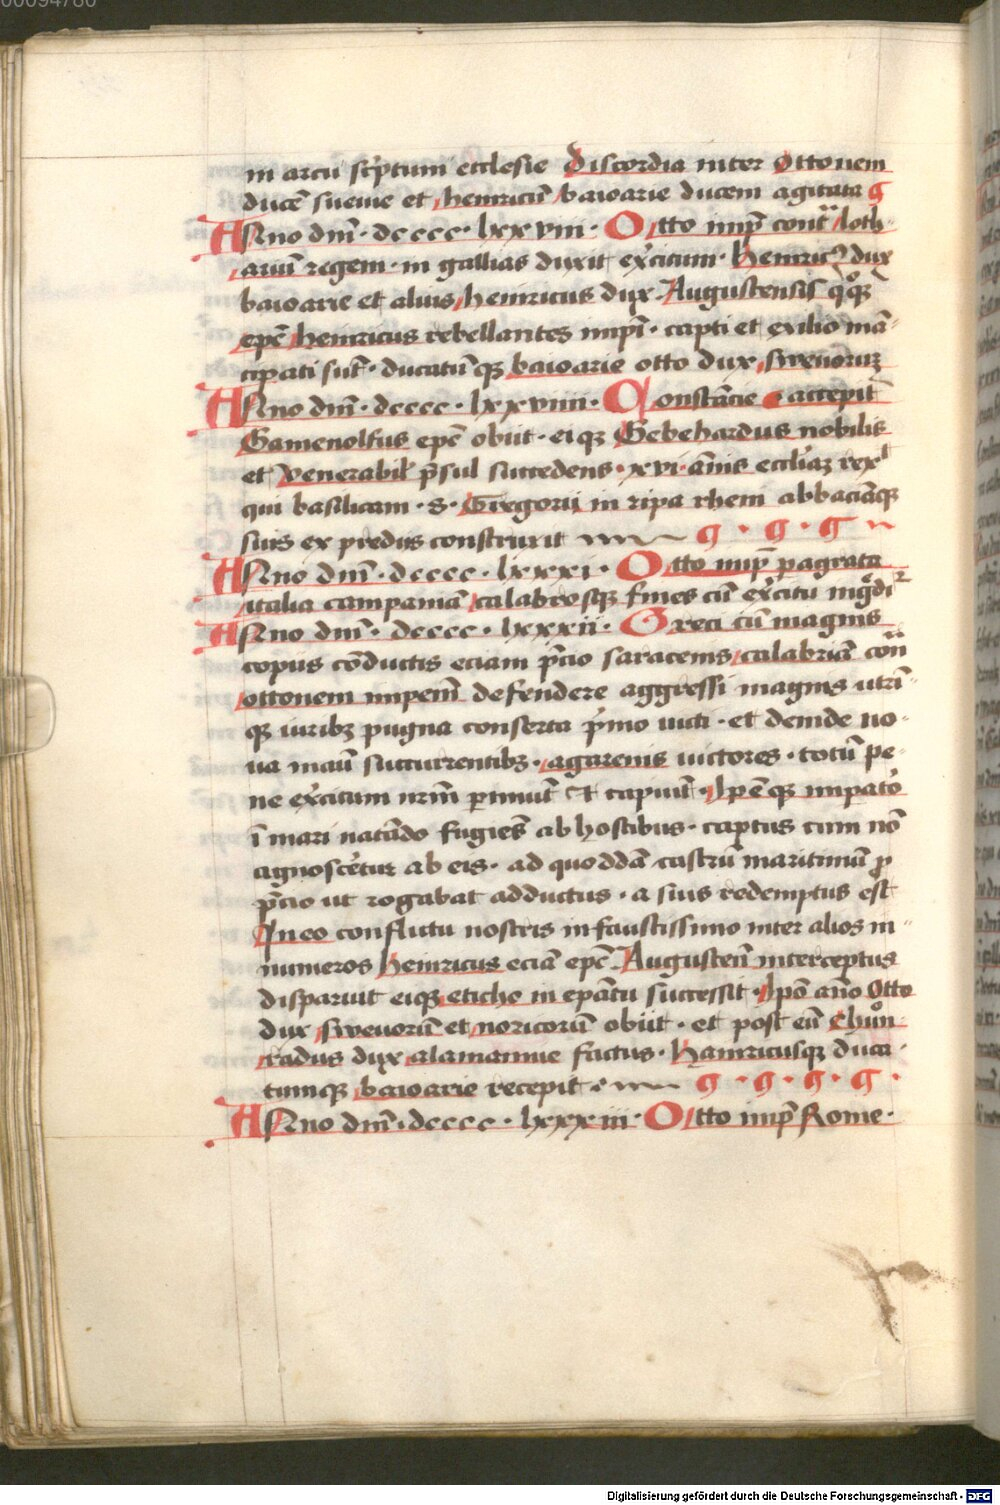 00094780
in arcu sc͛ptum ecclesie Discordia inter Ottonem
ducē sueuie et heinricū baioarie ducem agitata
ANno dn̄i · dcccc · lxxviii · Otto imp̄ contᵃ loth-
ariū regem · in gallias duxit ex͛citum · Heinricꝰ dux
baioarie et alius heinricus dux · Augustensis qͦqꝫ
ep̄c heinricus rebellantes imp̄i · capti et exilio mā-
cipati sūt · ducatūqꝫ baioarie otto dux sweuoruꝝ
ANno dn̄i · dcccc · lxxviiii · Constācie accepit
Gamenolfus ep̄c obiit · eiqꝫ Gebehardus nobilis
et Venerabil͛ p̄sul succedens · xvi · annis eccl͛iaꝫ rexͭ
qui basilicam · S · Gregorii in ripa rheni abbaciāqꝫ
suis ex prediis construxit
ANno dn̄i · dcccc · lxxxi · Otto imp̄ pagrata
italia campaniā calabrosqꝫ fines cū ex͛citu īgͣditͬ
ANno dn̄i · dcccc · lxxxii · Greci cū magnis
copiis cōductis eciam p̄cio saracenis calabriā cont͛
ottonem impem̄ defendere aggressi magnis utri-
qꝫ uiribꝫ pugna conserta p͛mo uicti · et deinde no-
ua manū succurrentibꝫ · agarenis uictores · totū pe-
ne ex͛citum nr̄m pimūt et capiūt · Ip̄eqꝫ impato͛
ī mari natādo fugiēs ab hostibus · captus cum nō
agnosc͛etur ab eis · ad quoddā castrū maritimū p
p̄cio ut rogabat adductus · a suis redemptus est
In eo conflictu nostris infaustissimo inter alios in-
numeros Heinricus eciā ep̄c Augusteñ interceptus
disparuit eiqꝫ etiche in ep̄atu successit · Ip̄o año Otto
dux sweuorū et noricorū obiit · et post eū Chuͦn-
radus dux alamannie factus · Hainricusqꝫ duca-
tumqꝫ baioarie recepit
ANno dn̄i · dcccc · lxxxiii · Otto imp̄ Rome ·
Digitalisierung gefördert durch die Deutsche Forschungsgemeinschaft - DFG